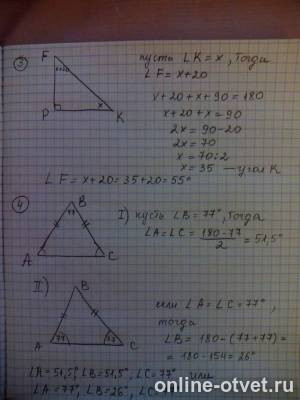 3
F
x+20
P
x
K
пусть LK = x, Тогда
LF = x+20
x+20+x+90 = 180
x+20+x = 90
2x = 90-20
2x = 70
x = 70:2
x = 35 — угол K
LF = x+20 = 35+20 = 55°
4
B
77
A
C
I) пусть LB = 77°, Тогда
LA = LC = 180-77 / 2 = 51,5°
II)
B
A
77
77
C
если LA = LC = 77°,
тогда
LB = 180-(77+77) =
= 180-154 = 26°
LA = 51,5°, LB = 51,5°, LC = 77° или
LA = 77°, LB = 26°,
online-otvet.ru